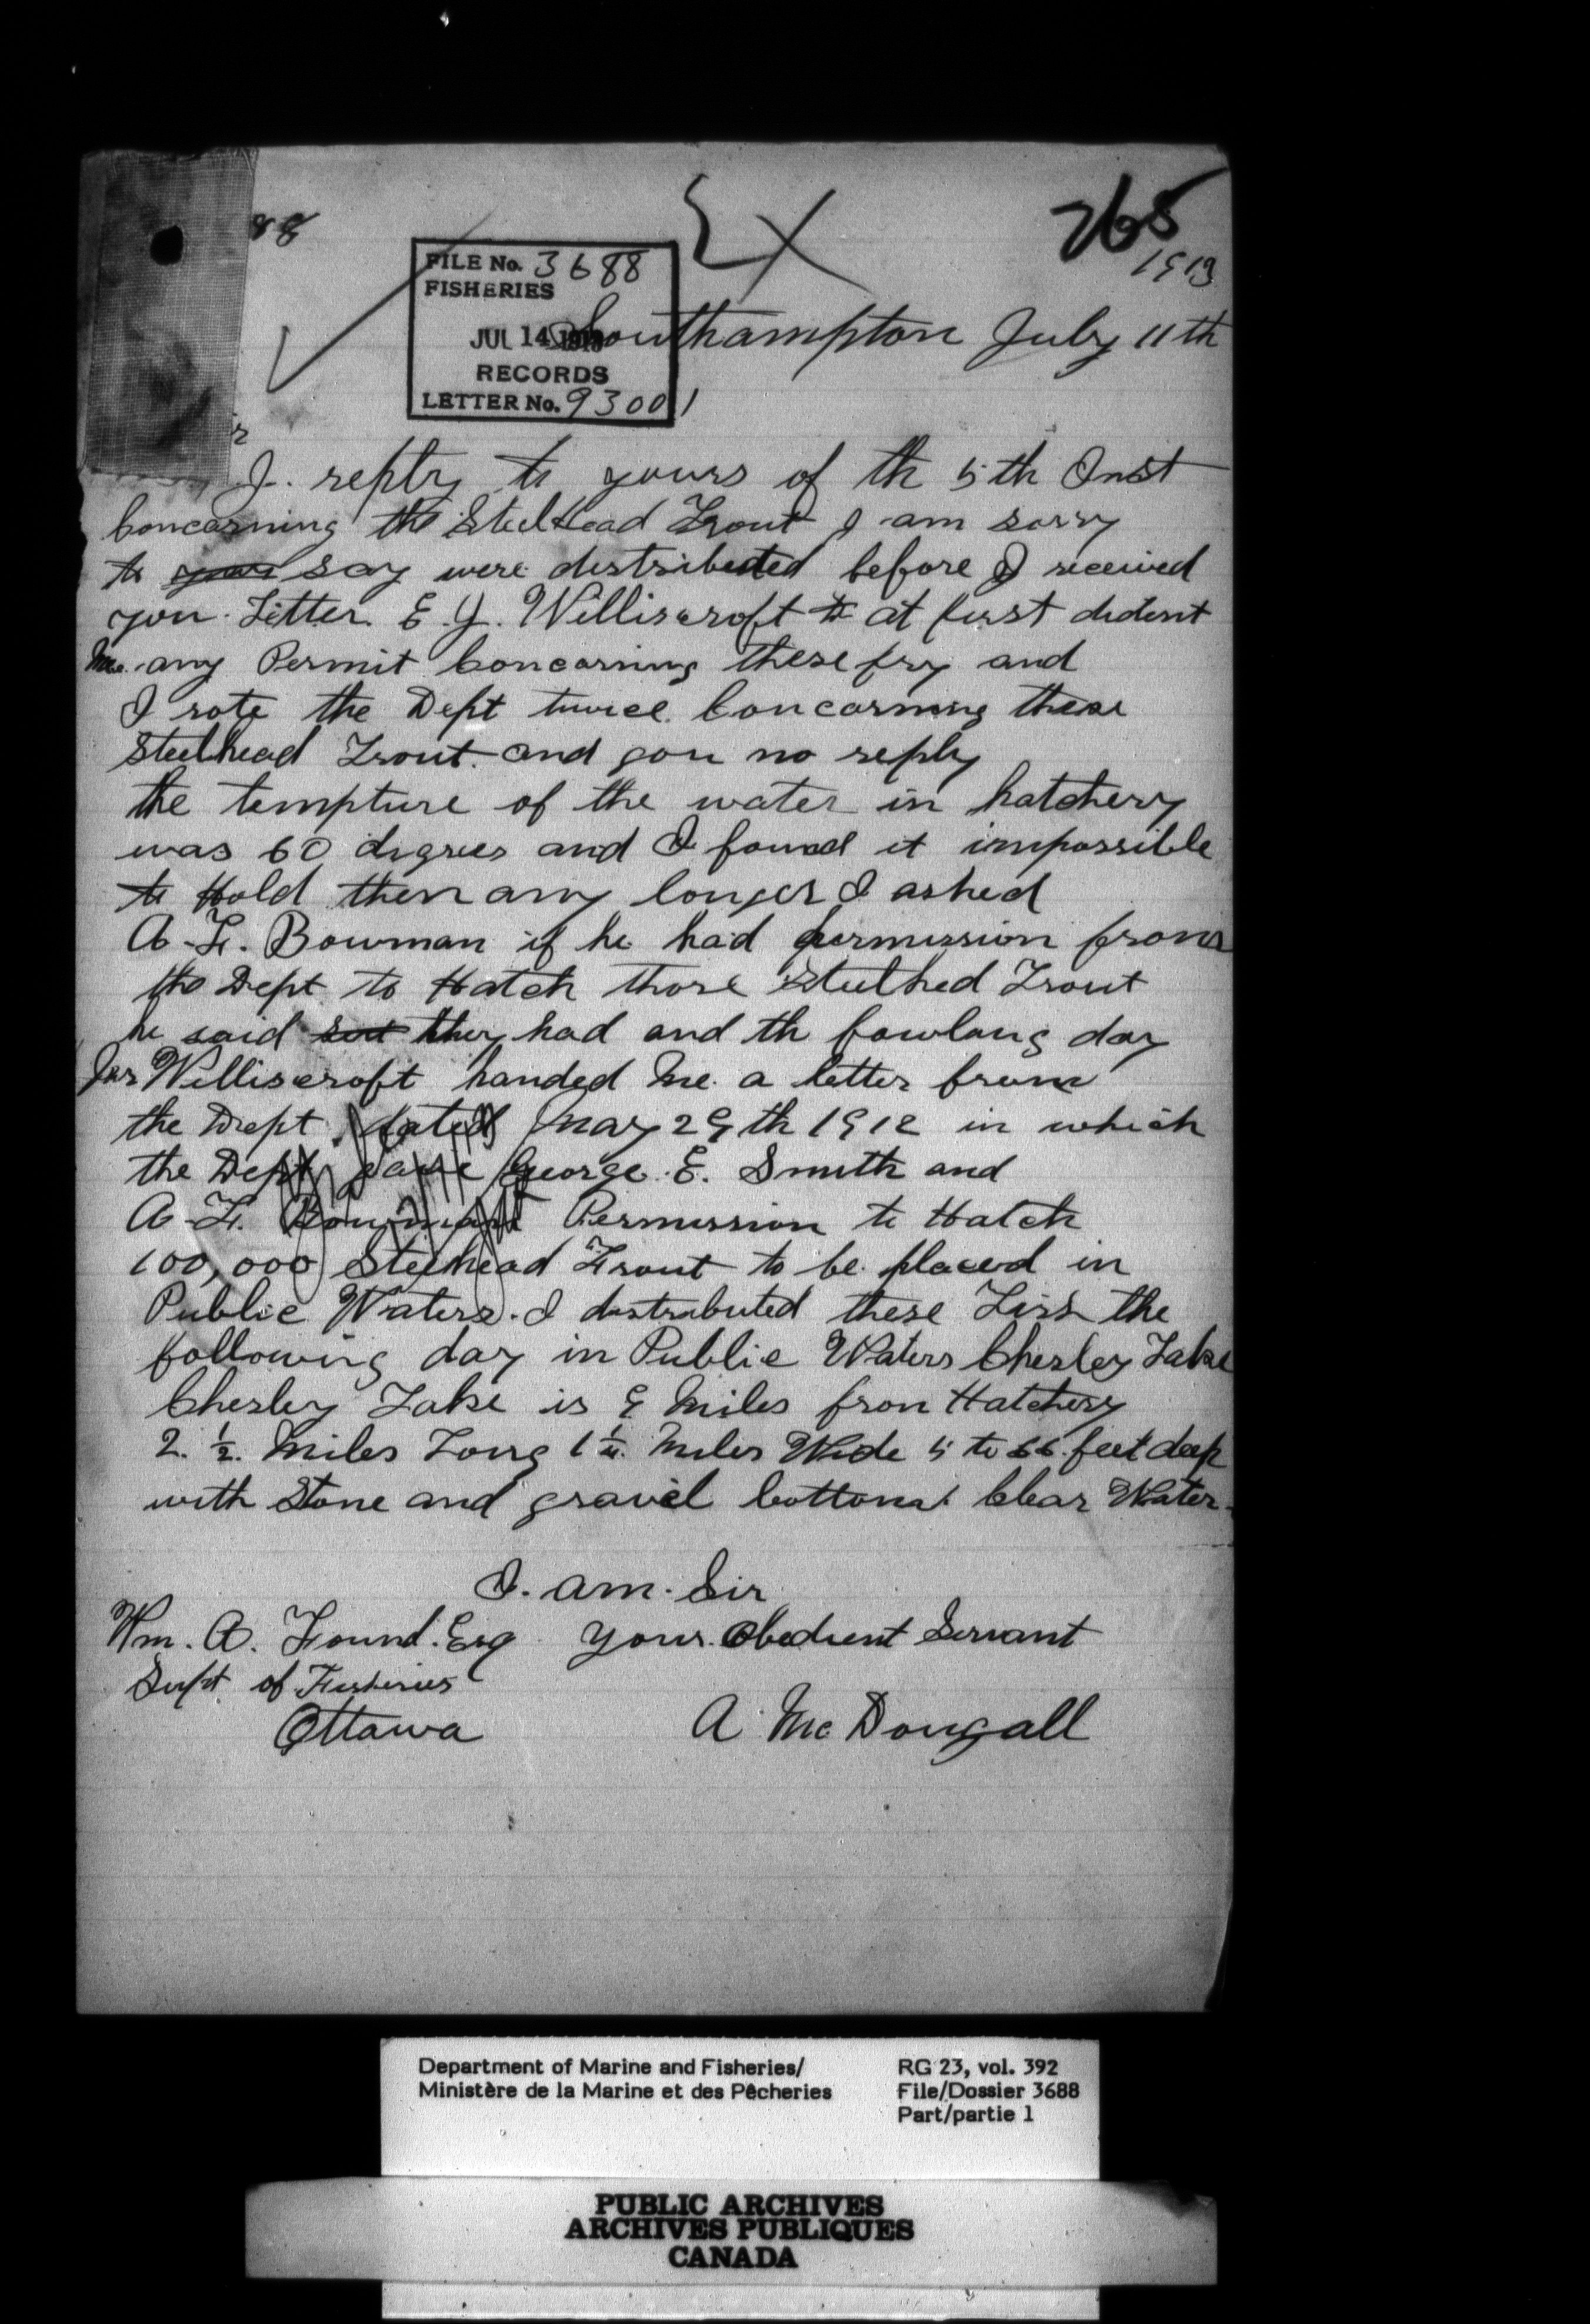 88
Ex
265
1913
FILE No. 3688
FISHERIES
JUL 14 1913
RECORDS
LETTER No. 93001
Southampton July 11th
I. reply to yours of th 5th Inst
Concarning the SteelHead Trout I am sorry
to your say were distributed before I received
you Letter. E. J. Williscroft at first dident
any Permit Concarning these fry and
I rote the Dept twice Concarning these
Steelhead Trout and gou no reply
the tempture of the water in hatchery
was 60 degrees and I found it impossible
to Hold then any longer I asked
A. F. Bowman if he had permission from
the Dept to Hatch those Steelhed Trout
he said they had and th fowlang day
Jas Williscroft handed Me a letter from
the Dept. dated May 29th 1912 in which
the Dept gave George. E. Smith and
A. F. Bowman Permission to Hatch
100,000 Steelhead Trout to be placed in
Public Waters. I distributed these Fish the
following day in Public Waters Chesley Lake
Chesley Lake is 9 Miles fron Hatchery
2. ½. Miles Long 1 ¼. Miles Wide 5 to 66 feet deep
with Stone and gravel bottom. Clear Water.
I. am. Sir
Wm. A. Found. Esq your. Obedient Servant
Supt of Fisheries
Ottawa A McDougall
Department of Marine and Fisheries/
Ministère de la Marine et des Pêcheries
RG 23, vol. 392
File/Dossier 3688
Part/partie 1
PUBLIC ARCHIVES
ARCHIVES PUBLIQUES
CANADA